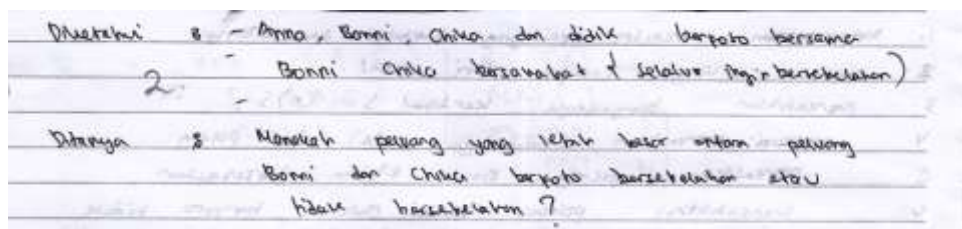 Diketahui : - Anna, Bonni, Chika dan didik berfoto bersama
2. Bonni Chika bersahabat ( selalu ingin bersebelahan )
-
Ditanya : Manakah peluang yang lebih besar antara peluang
Bonni dan Chika berfoto bersebelahan atau
tidak bersebelahan ?